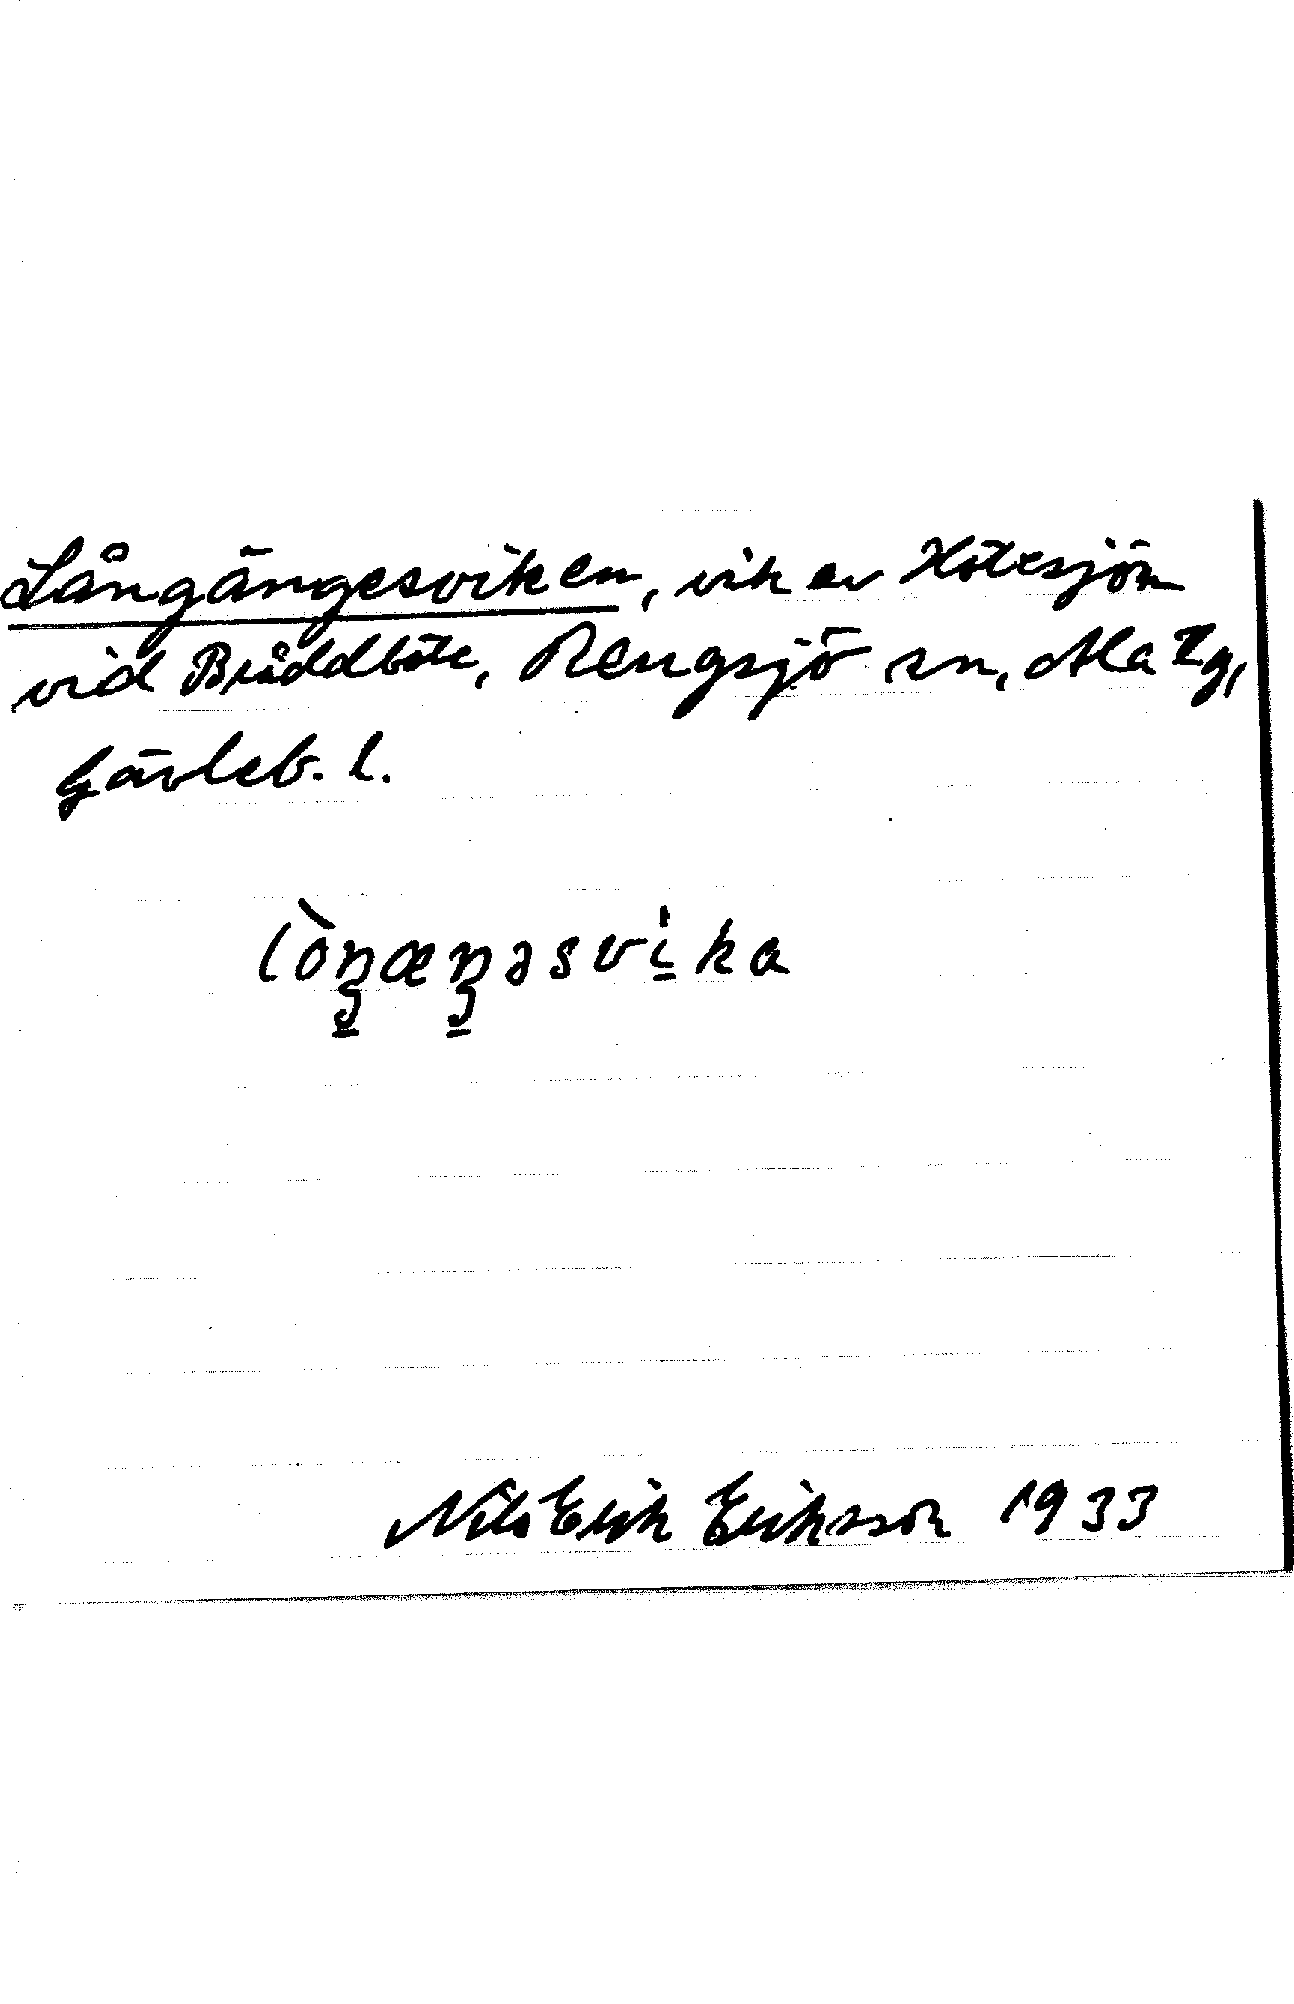 Långängesviken, vik av Hötesjön
vid Bräddböte, Rengsjö sn, Ala tg,
Gävleb. l.
lòŋæŋəsvika
Nils Erik Eriksson 1933